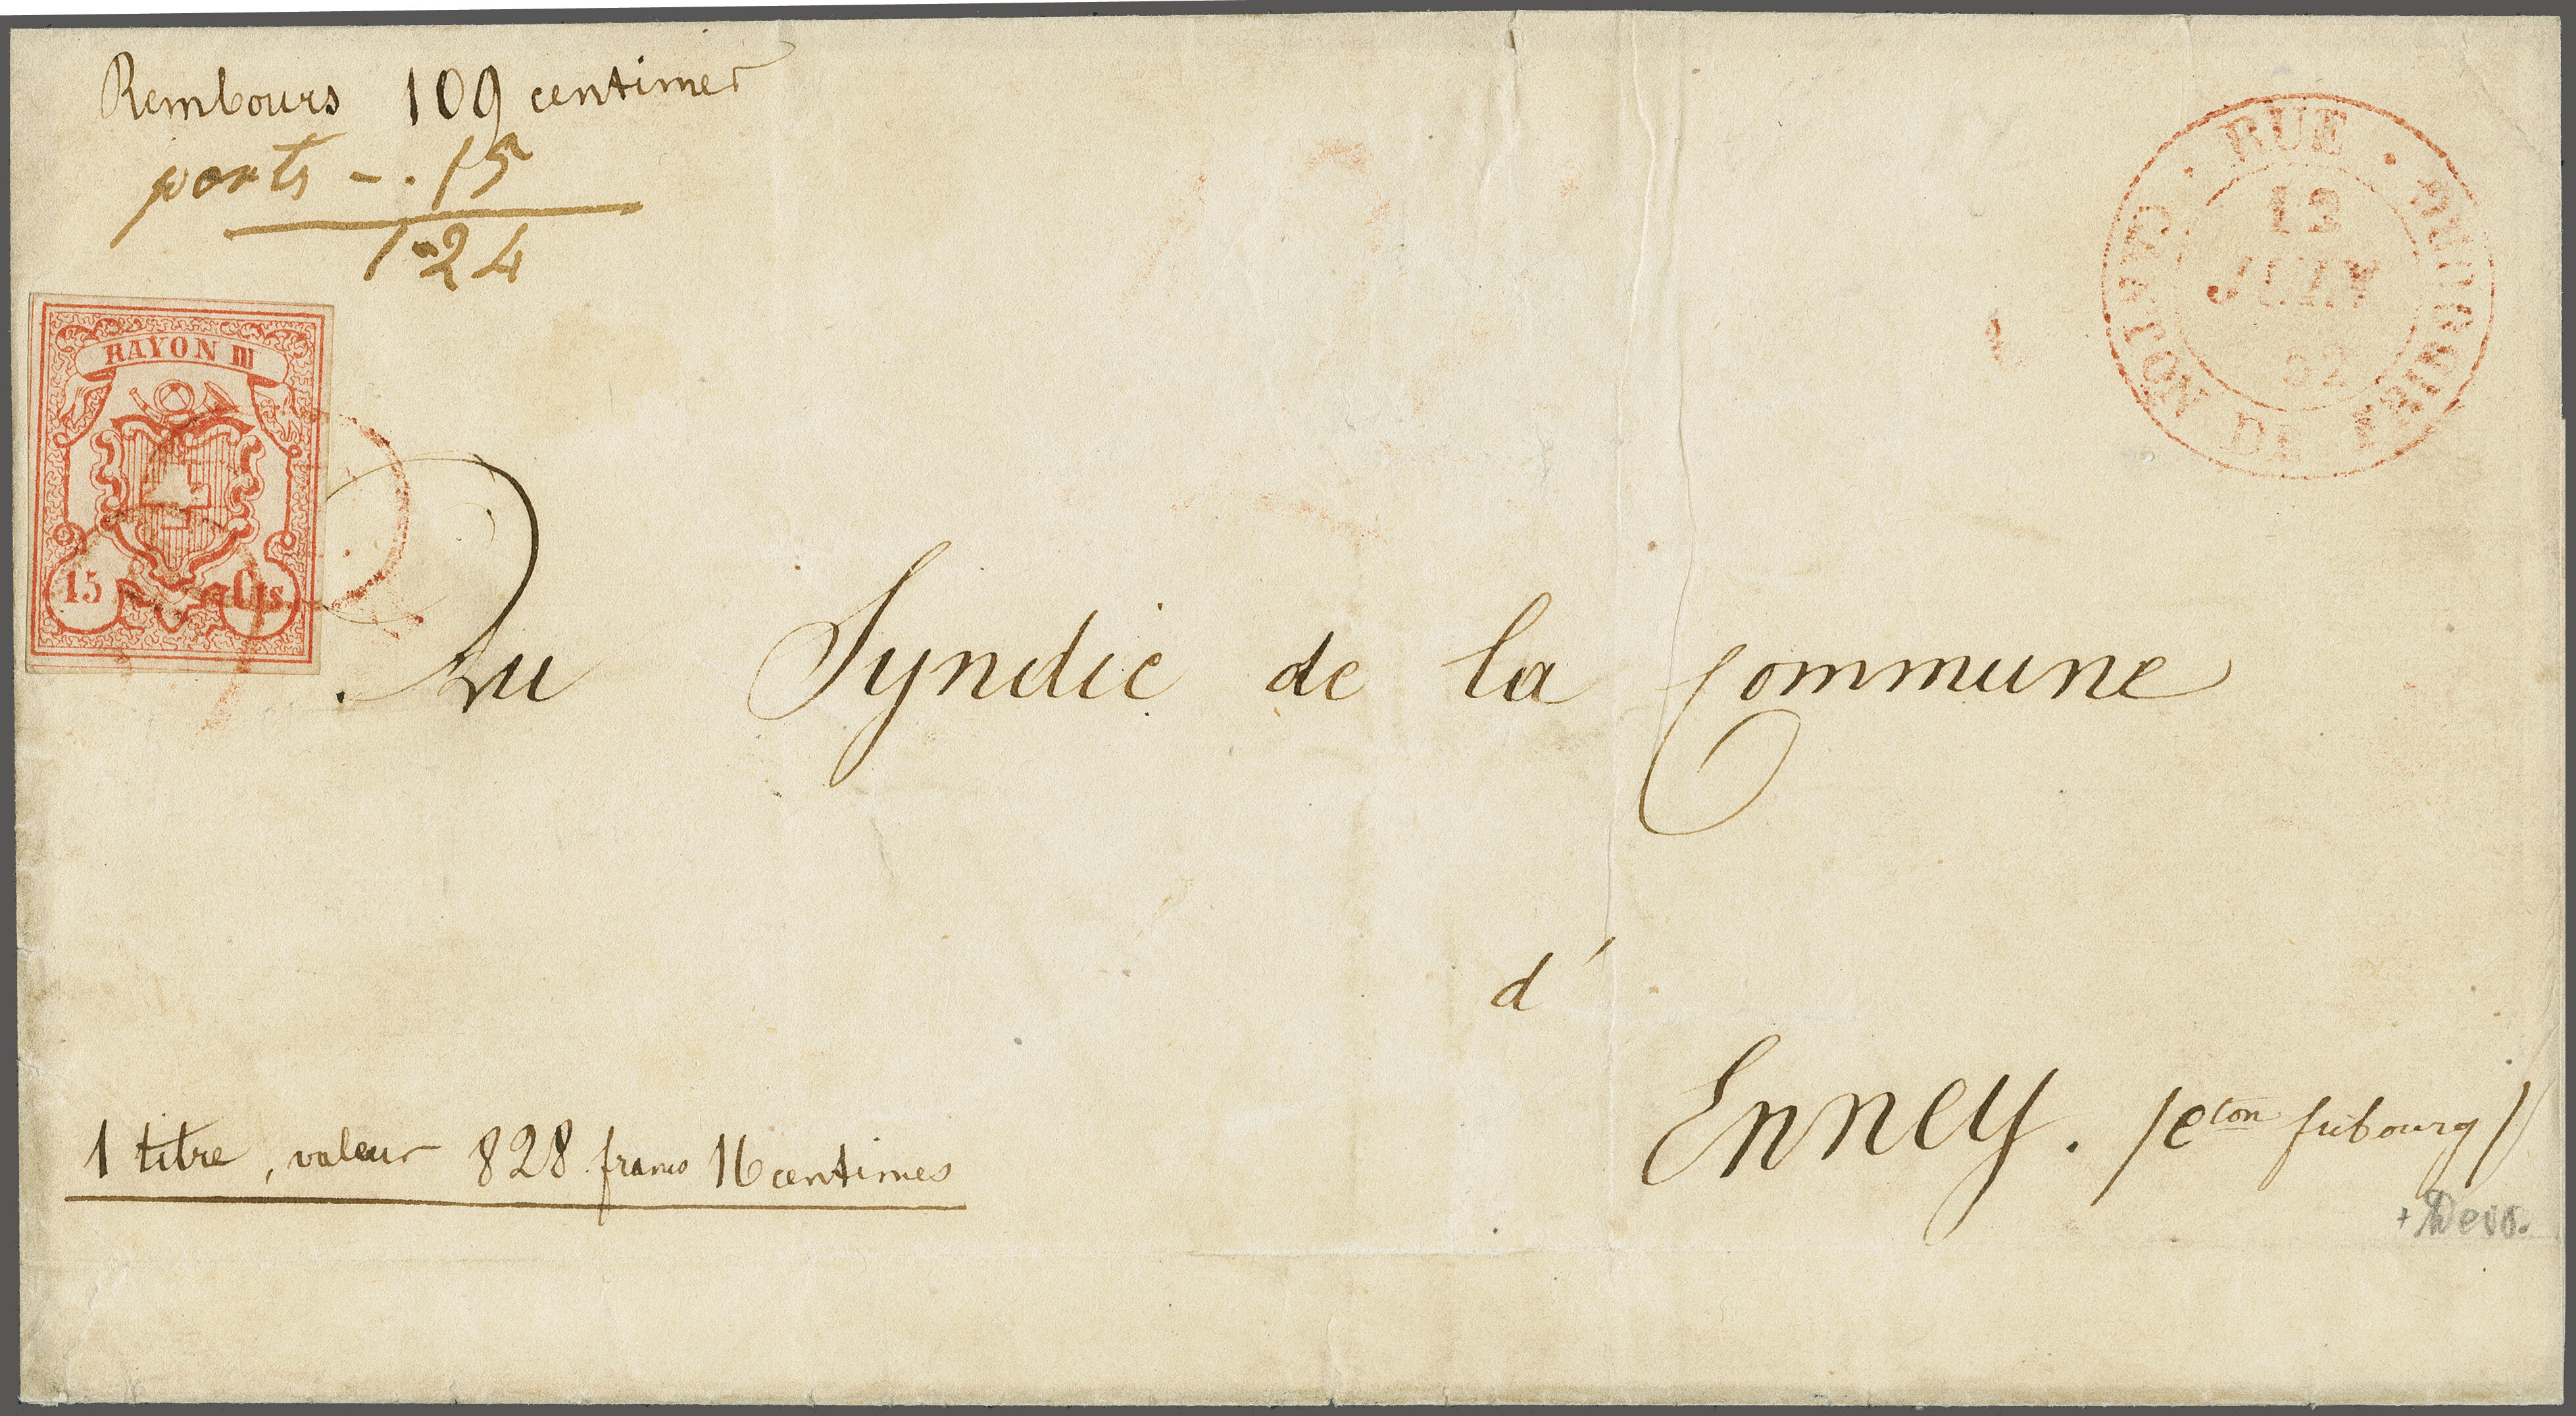 Rembours 109 centimes
ports -. 15
1 " 24
RUE
12
JULY
52
CANTON DE FRIBOURG
RAYON III
15 Cts.
Au Syndic de la Commune
d'
Enney. (Cton fribourg)
1 titre, valeur 828 francs 16 centimes